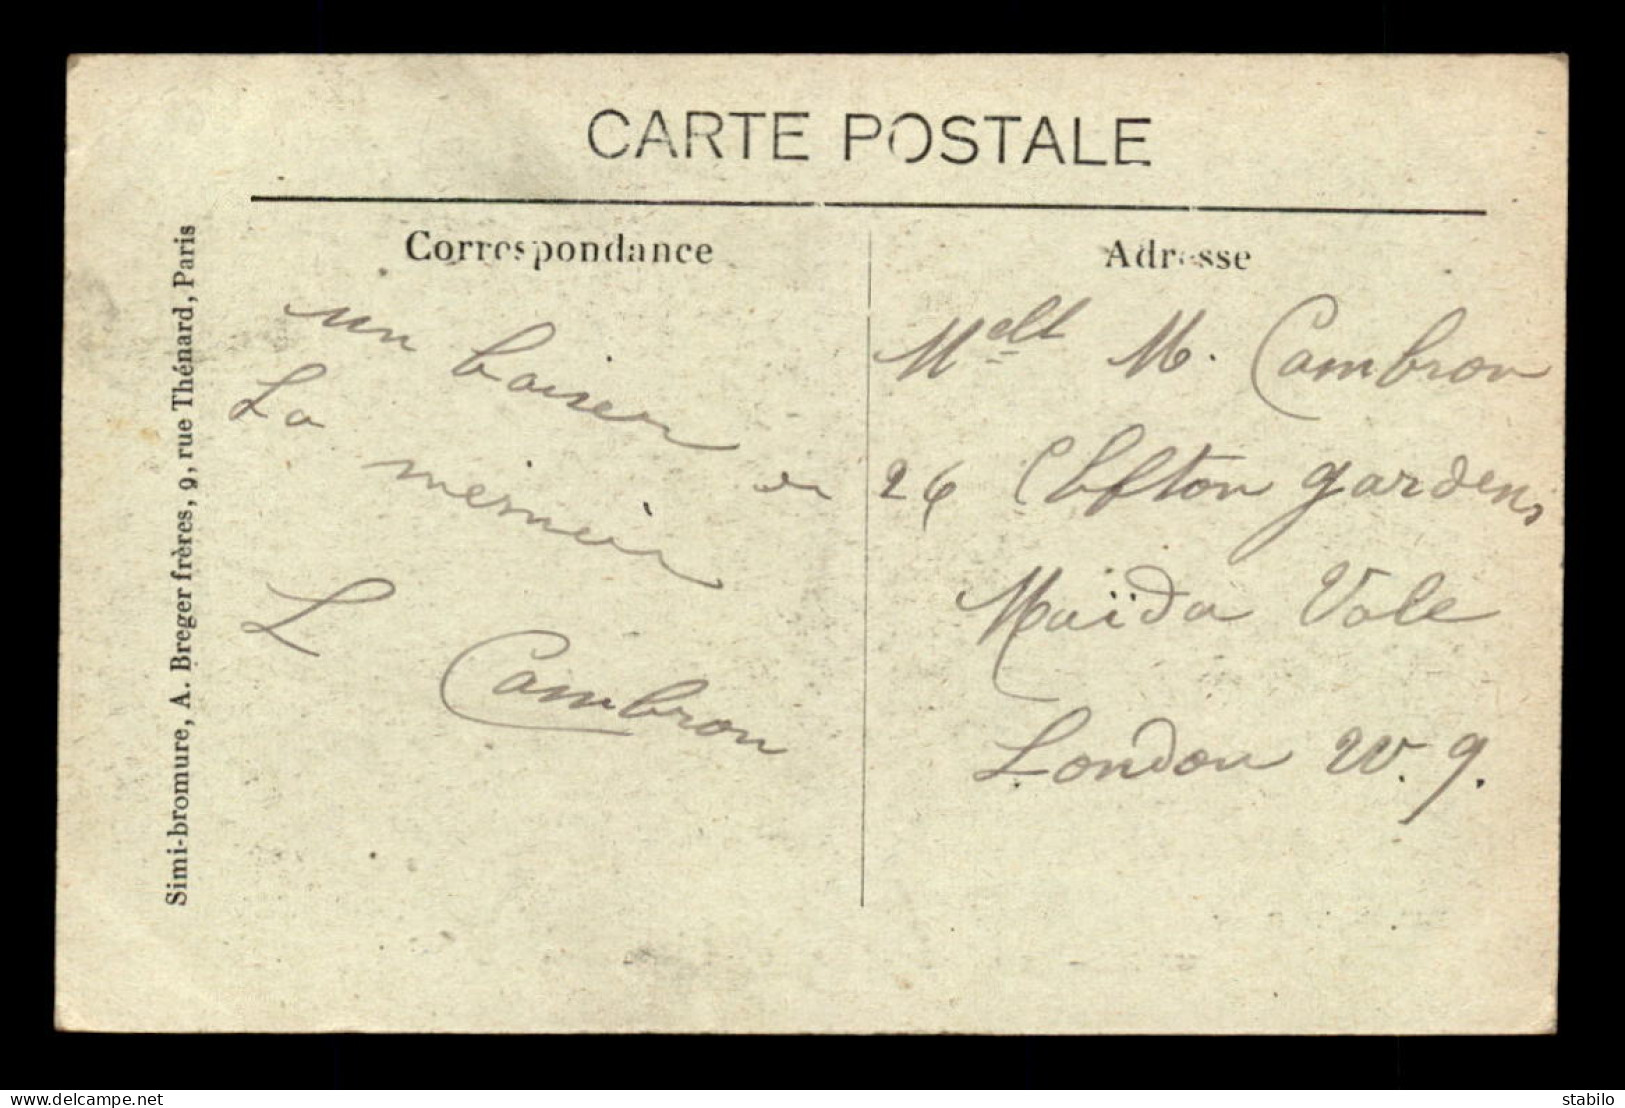 CARTE POSTALE
Simi-bromure, A. Breger frères, 9, rue Thénard, Paris
Correspondance
un baiser
La
L Cambron
Adresse
Melle M. Cambron
26 Clifton gardens
Maïda Vale
London W. 9.
www.delcampe.net
stabilo